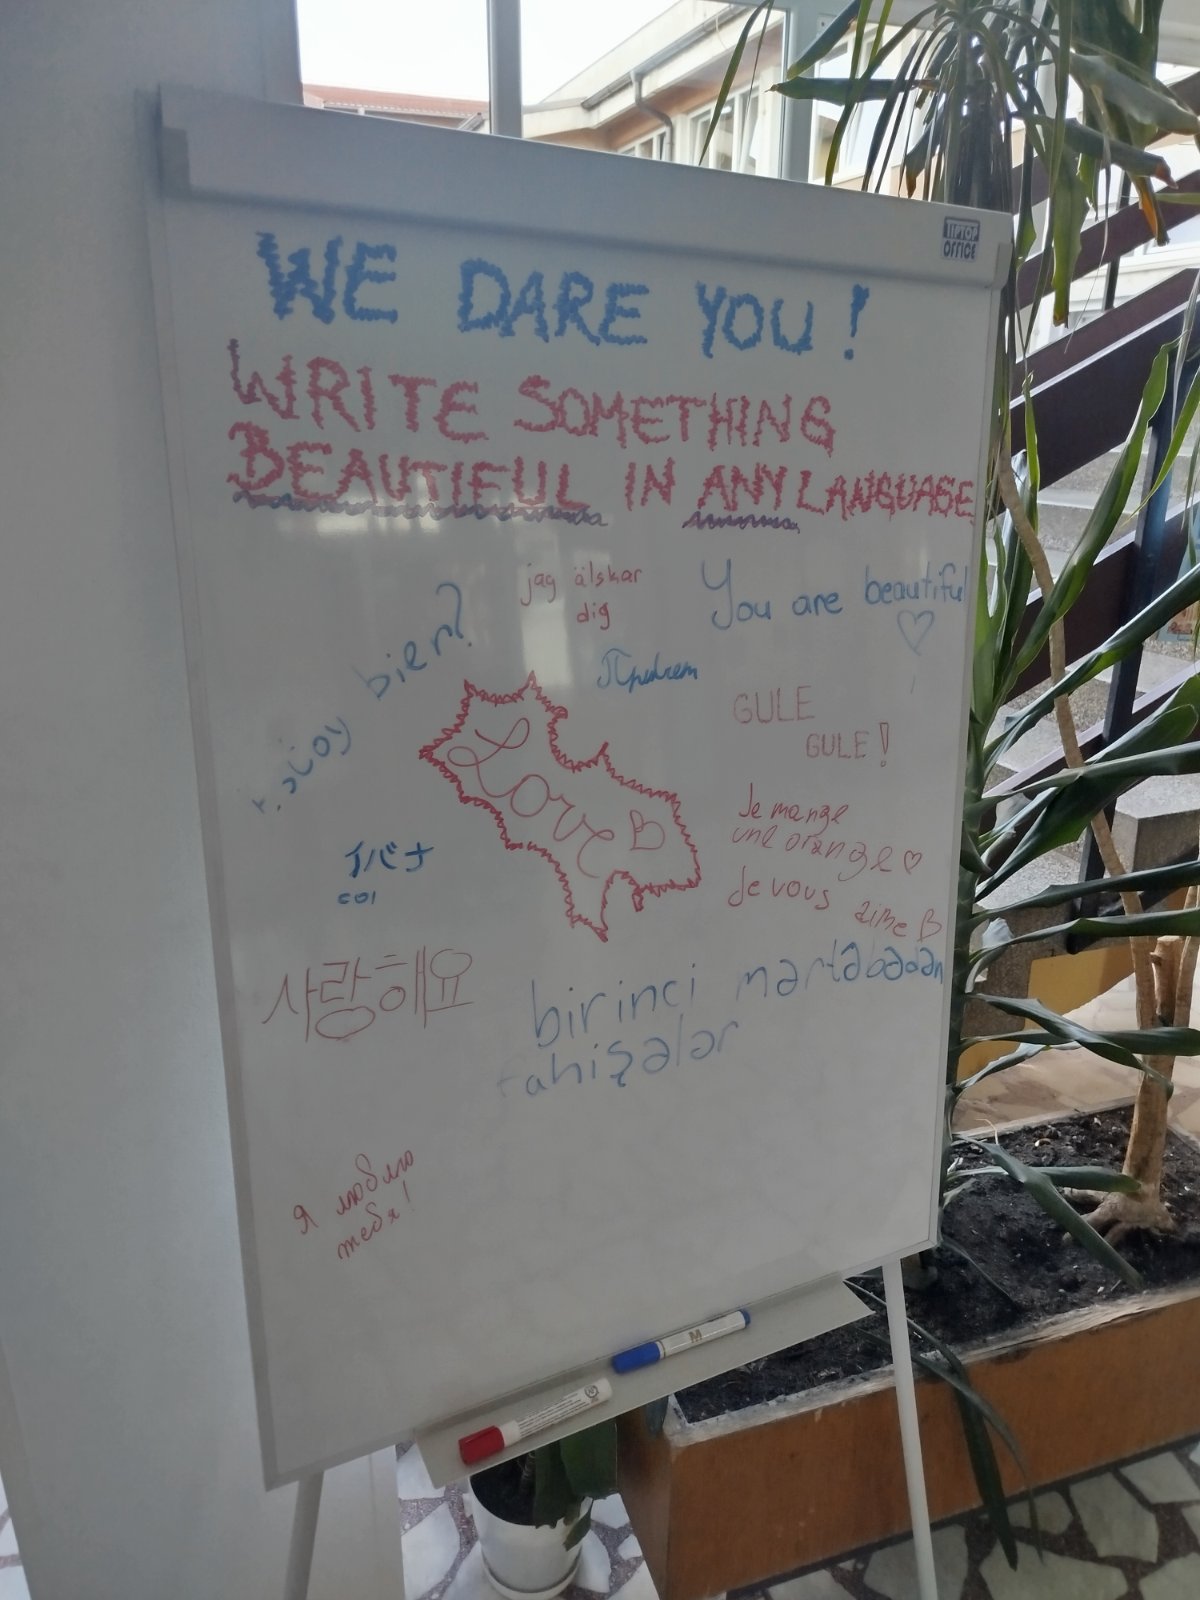 TIPTOP
OFFICE
WE DARE YOU!
WRITE SOMETHING
BEAUTIFUL IN ANY LANGUAGE
jag älskar
dig
You are beautiful
bien?
Привет
Love
GULE
GULE!
Je mange
une orange
Je vous aime
イバナ
사랑해요
birinci mərtəbədən
fahişələr
Я люблю
тебя!
M